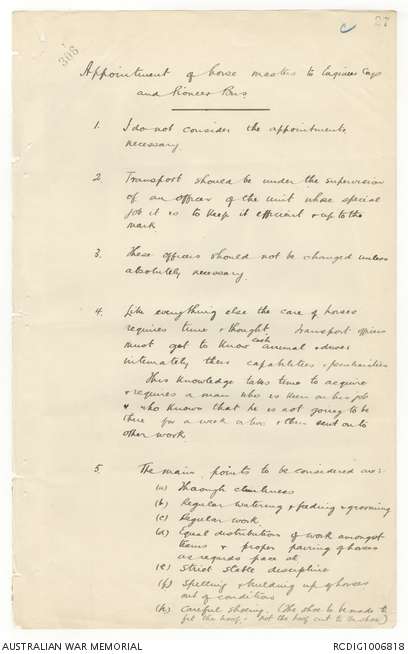 27
306
Appointment of horse masters to Engineer Coys
and Pioneer Bns.
1. I do not consider the appointments
necessary
2. Transport should be under the supervision
of an officer of the unit whose special
job it is to keep it efficient & up to the
mark
3. These officers should not be changed unless
absolutely necessary.
4. Like everything else the care of horses
requires time & thought Transport officers
must get to know each animal & driver
intimately their capabilities & peculiarities
This knowledge takes time to acquire
& requires a man who is keen on his job
& who knows that he is not going to be
there for a week or two & then sent on to
other work
5. The main points to be considered are:
(a) Thorough cleanliness
(b) Regular watering & feeding & grooming
(c) Regular work
(d) Equal distribution of work amongst
teams & proper pairing of horses
as regards pace etc
(e) Strict stable discipline
(f) Spelling & building up of horses
out of condition
(h) Careful shoeing. (The shoe to be made to
fit the hoof & not the hoof cut to the shoe)
AUSTRALIAN WAR MEMORIAL
RCDIG1006818